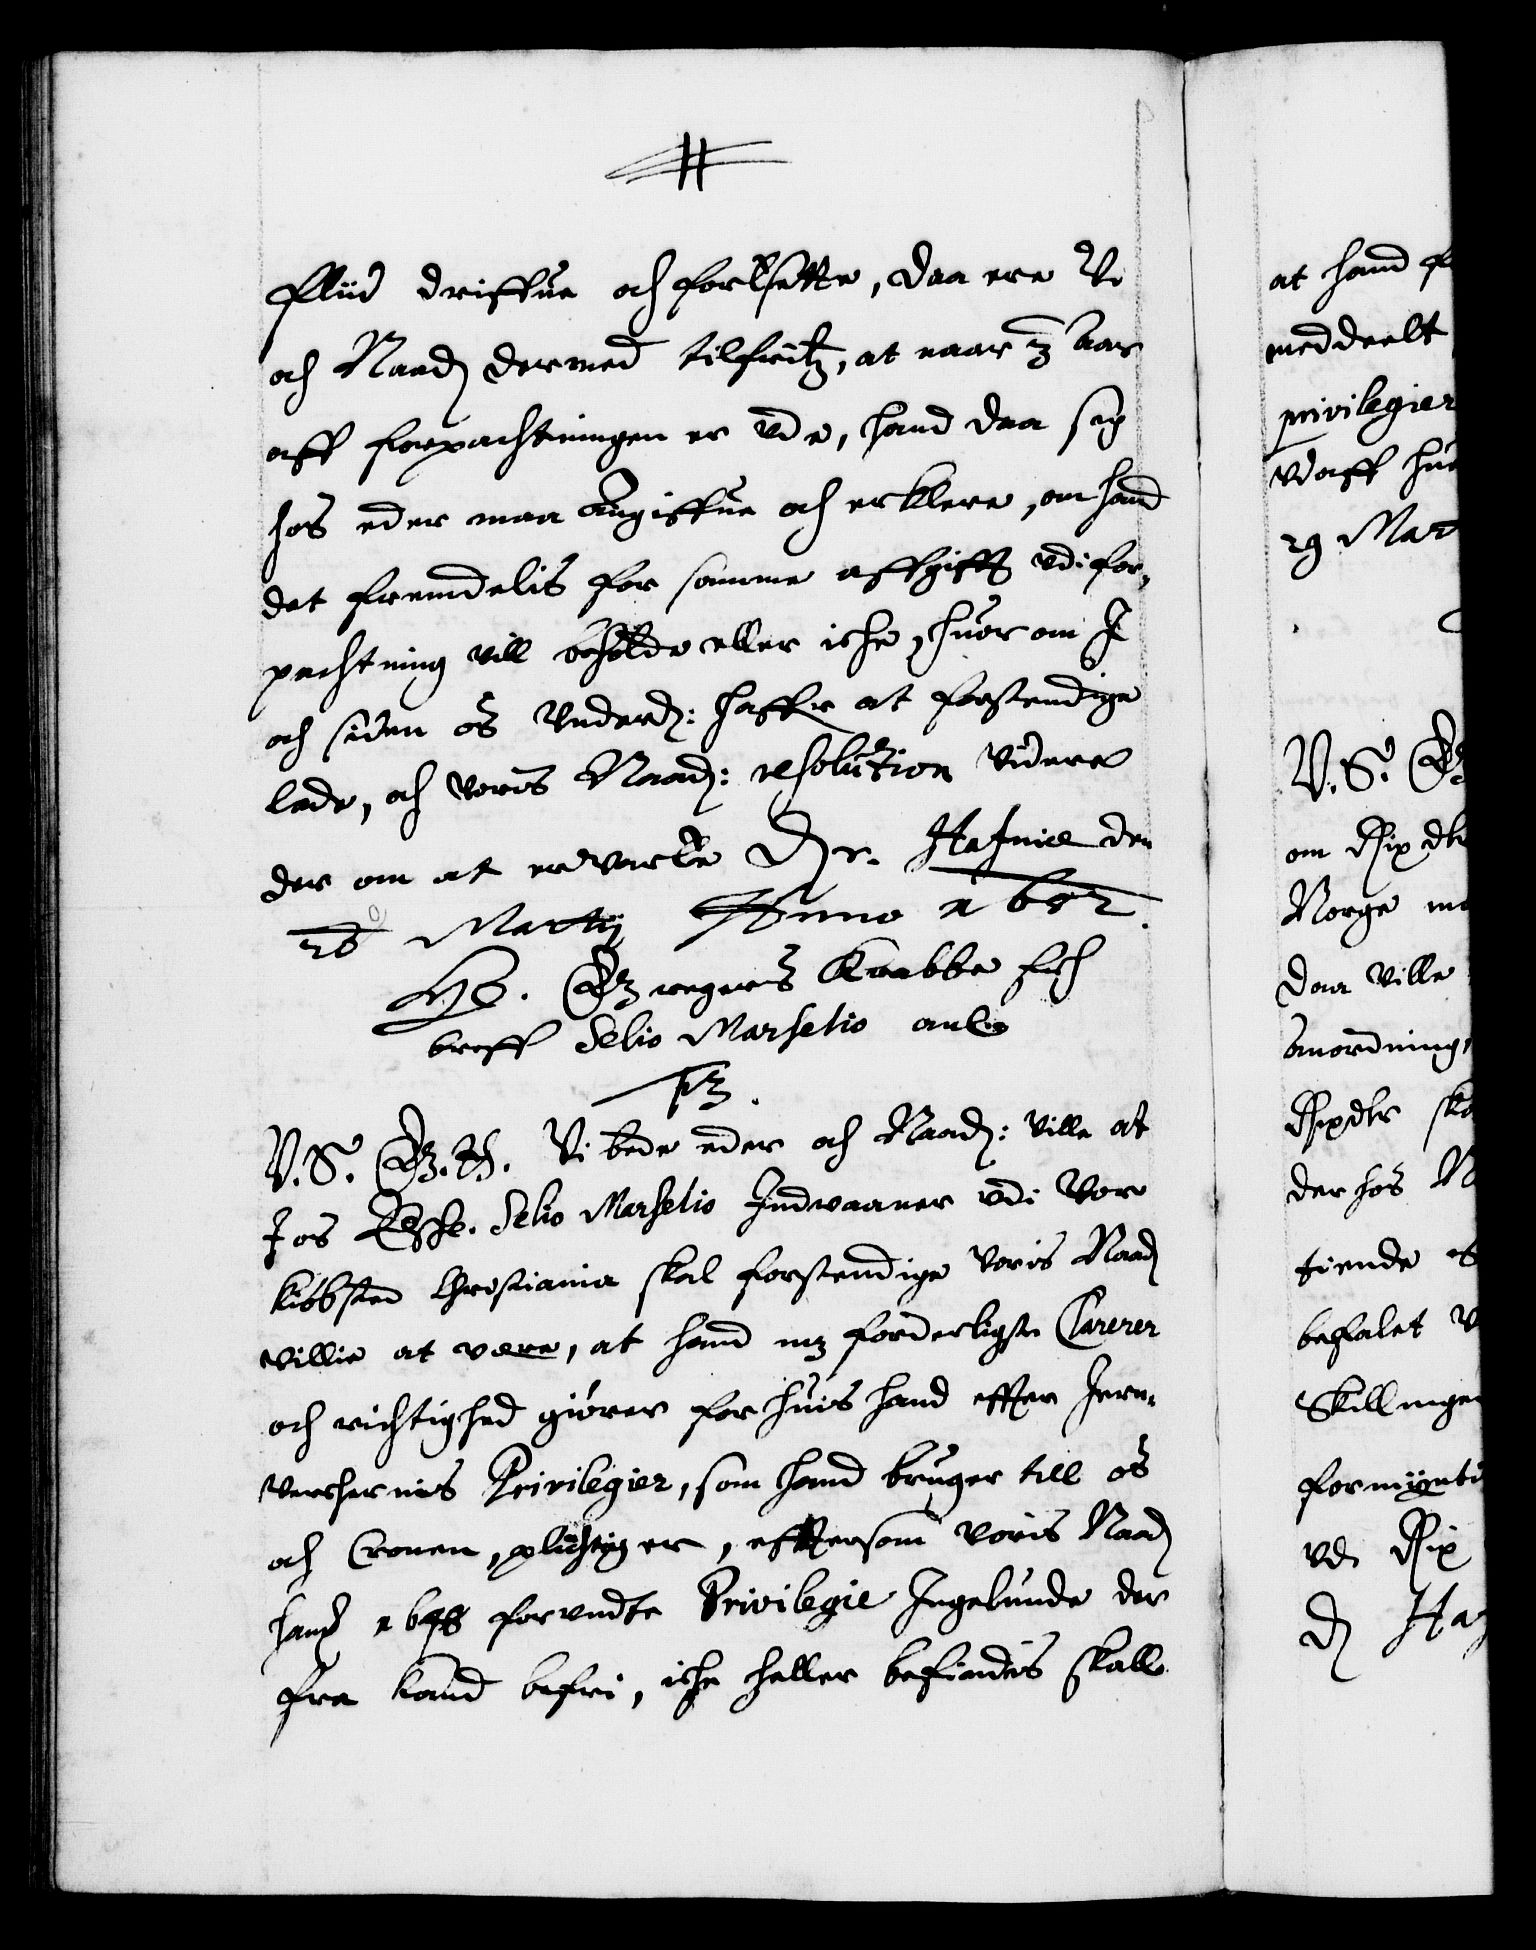 Fliid driffue och fortsette, daa ere Vi
och Naad: dermed tilfridtz, at naar 3 aar
aff forpachtningen er vde, hand daa sig
hos eder maa angiffue och erklere, om hand
det fremdelis for samme affgifft vdi for,,
pachtning vill beholde eller iche, huorom I
och siden os Underd: haffr at forstendige
lade, och voris Naad: resolution videre
der om at ervarte D. v. Hafniæ den
28 Martij Anno 1652.
Gregers Krabbe fich
breff Selio Marselio anl:
V. S. G. T. Vi bede eder och Naad: ville at
I os Elschl. Selio Marselio Indvaaner vdi Vor
kiøbsted Christiania skal forstendige voris Naad
villie at være, at hand med forderligste Clarerer
och richtighed giører for huis hand effter Jern,,
verchernis Privilegier, som hand bruger till os
och Cronen, plichtig er, effttersom voris Naad
hans 1648 forundte Privilegie Ingelunde der
fra kand befri, iche heller befindis skall
at hand f
meddeelt
privilegier
Vdaff hue
29 Mar
V. S. G
om Rix dl
Norge me
daa ville
anordning,
Rixdlr ska
derhos N
tiende
befalet V
Skillinge
formynt
vdi Rix
D Ha